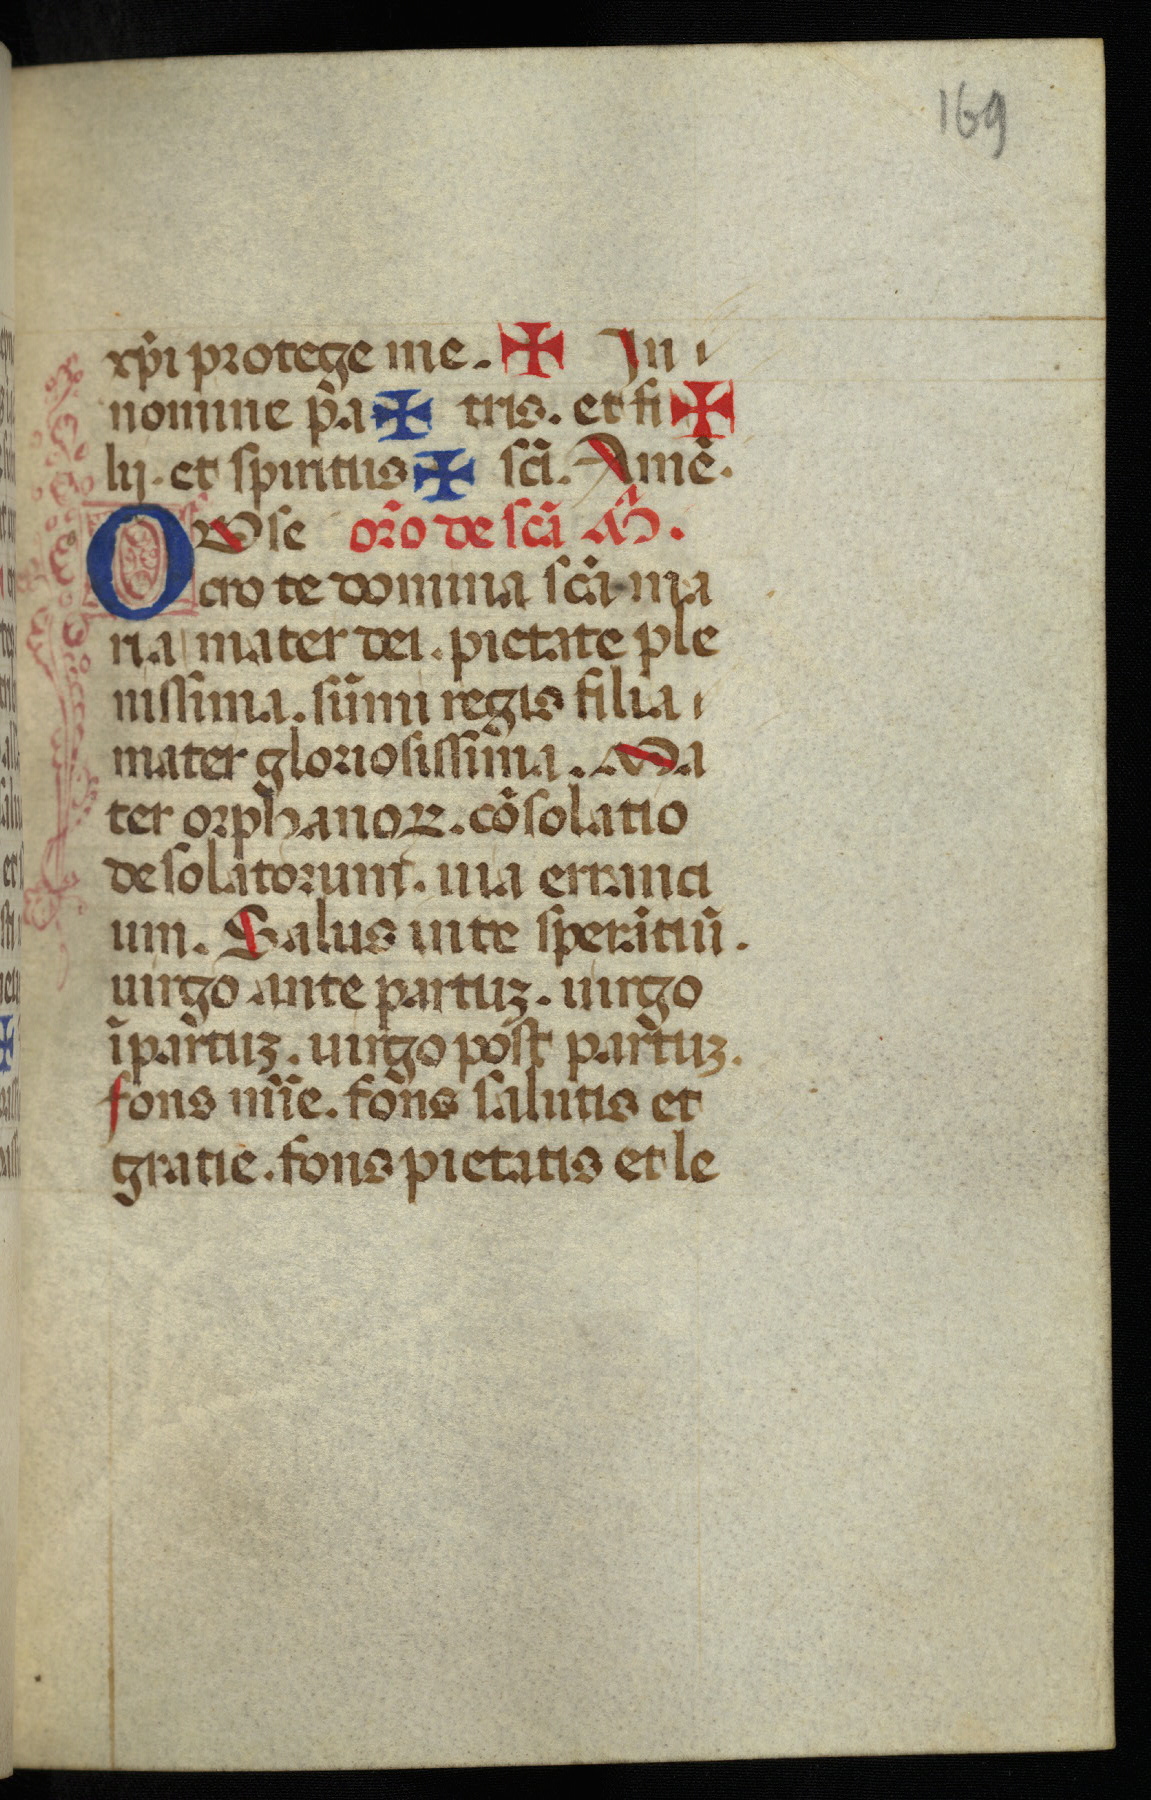 169
xp̄i protege me. ✠ In
nomine pa ✠ tris. et fi ✠
lij. et spiritus ✠ sc̄i. Amē.
or̄o de sc̄a M̄.
O
cro te domina sc̄a ma
ria mater dei. pietate ple
nissima. sūmi regis filia
mater gloriosissima. Ma
ter orphanoꝝ. cōsolatio
desolatorum. uia erranci
um. Salus in te sperātiū.
uirgo ante partuꝫ. uirgo
ī partuꝫ. uirgo post partuꝫ.
fons mīe. fons salutis et
gratie. fons pietatis et le